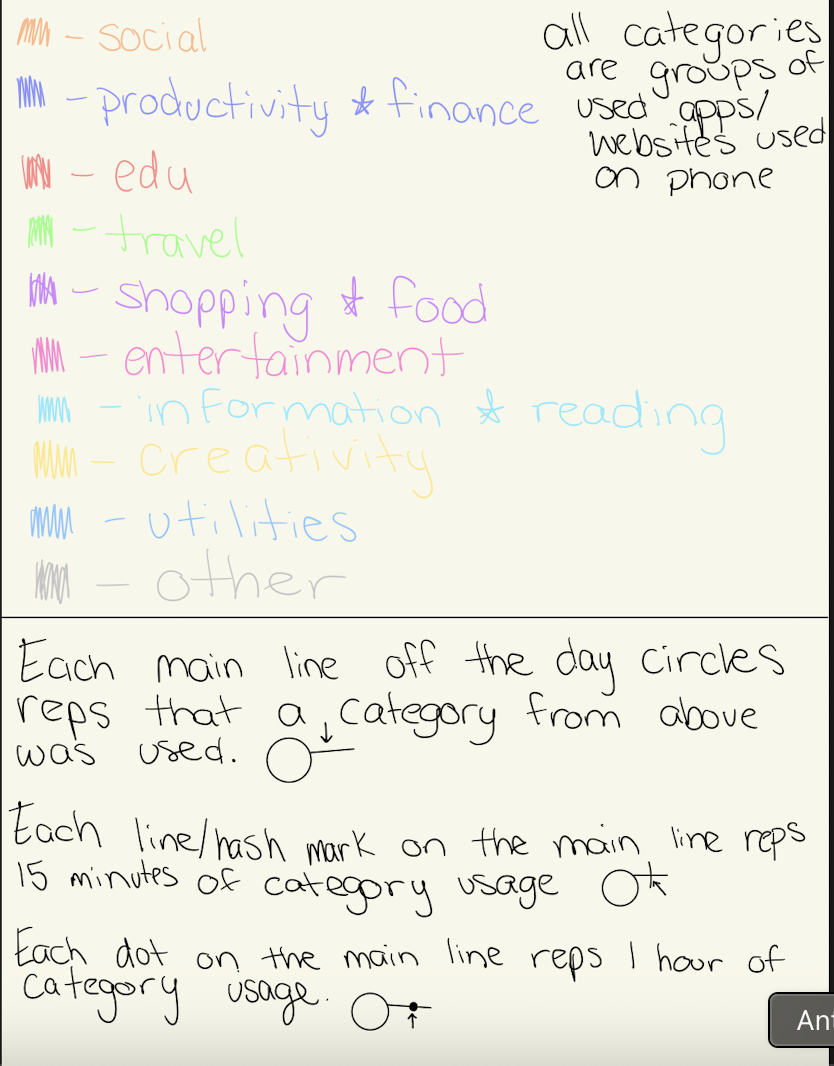 - social
- productivity & finance
- edu
- travel
- shopping & food
- entertainment
- information & reading
- creativity
- utilities
- other
all categories
are groups of
used apps/
websites used
on phone
Each main line off the day circles
reps that a category from above
was used.
Each line/hash mark on the main line reps
15 minutes of category usage
Each dot on the main line reps 1 hour of
category usage.
Ant